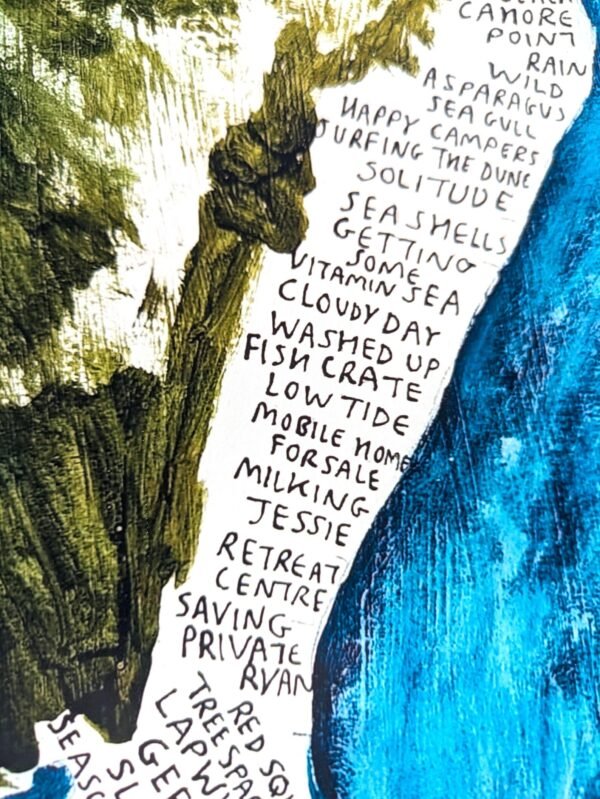 CAHORE
POINT
RAIN
WILD
ASPARAGUS
SEA GULL
HAPPY CAMPERS
SURFING THE DUNE
SOLITUDE
SEA SHELLS
GETTING
SOME
VITAMIN SEA
CLOUDY DAY
WASHED UP
FISH CRATE
LOW TIDE
MOBILE HOME
FOR SALE
MILKING
JESSIE
RETREAT
CENTRE
SAVING
PRIVATE
RYAN
RED
TREE